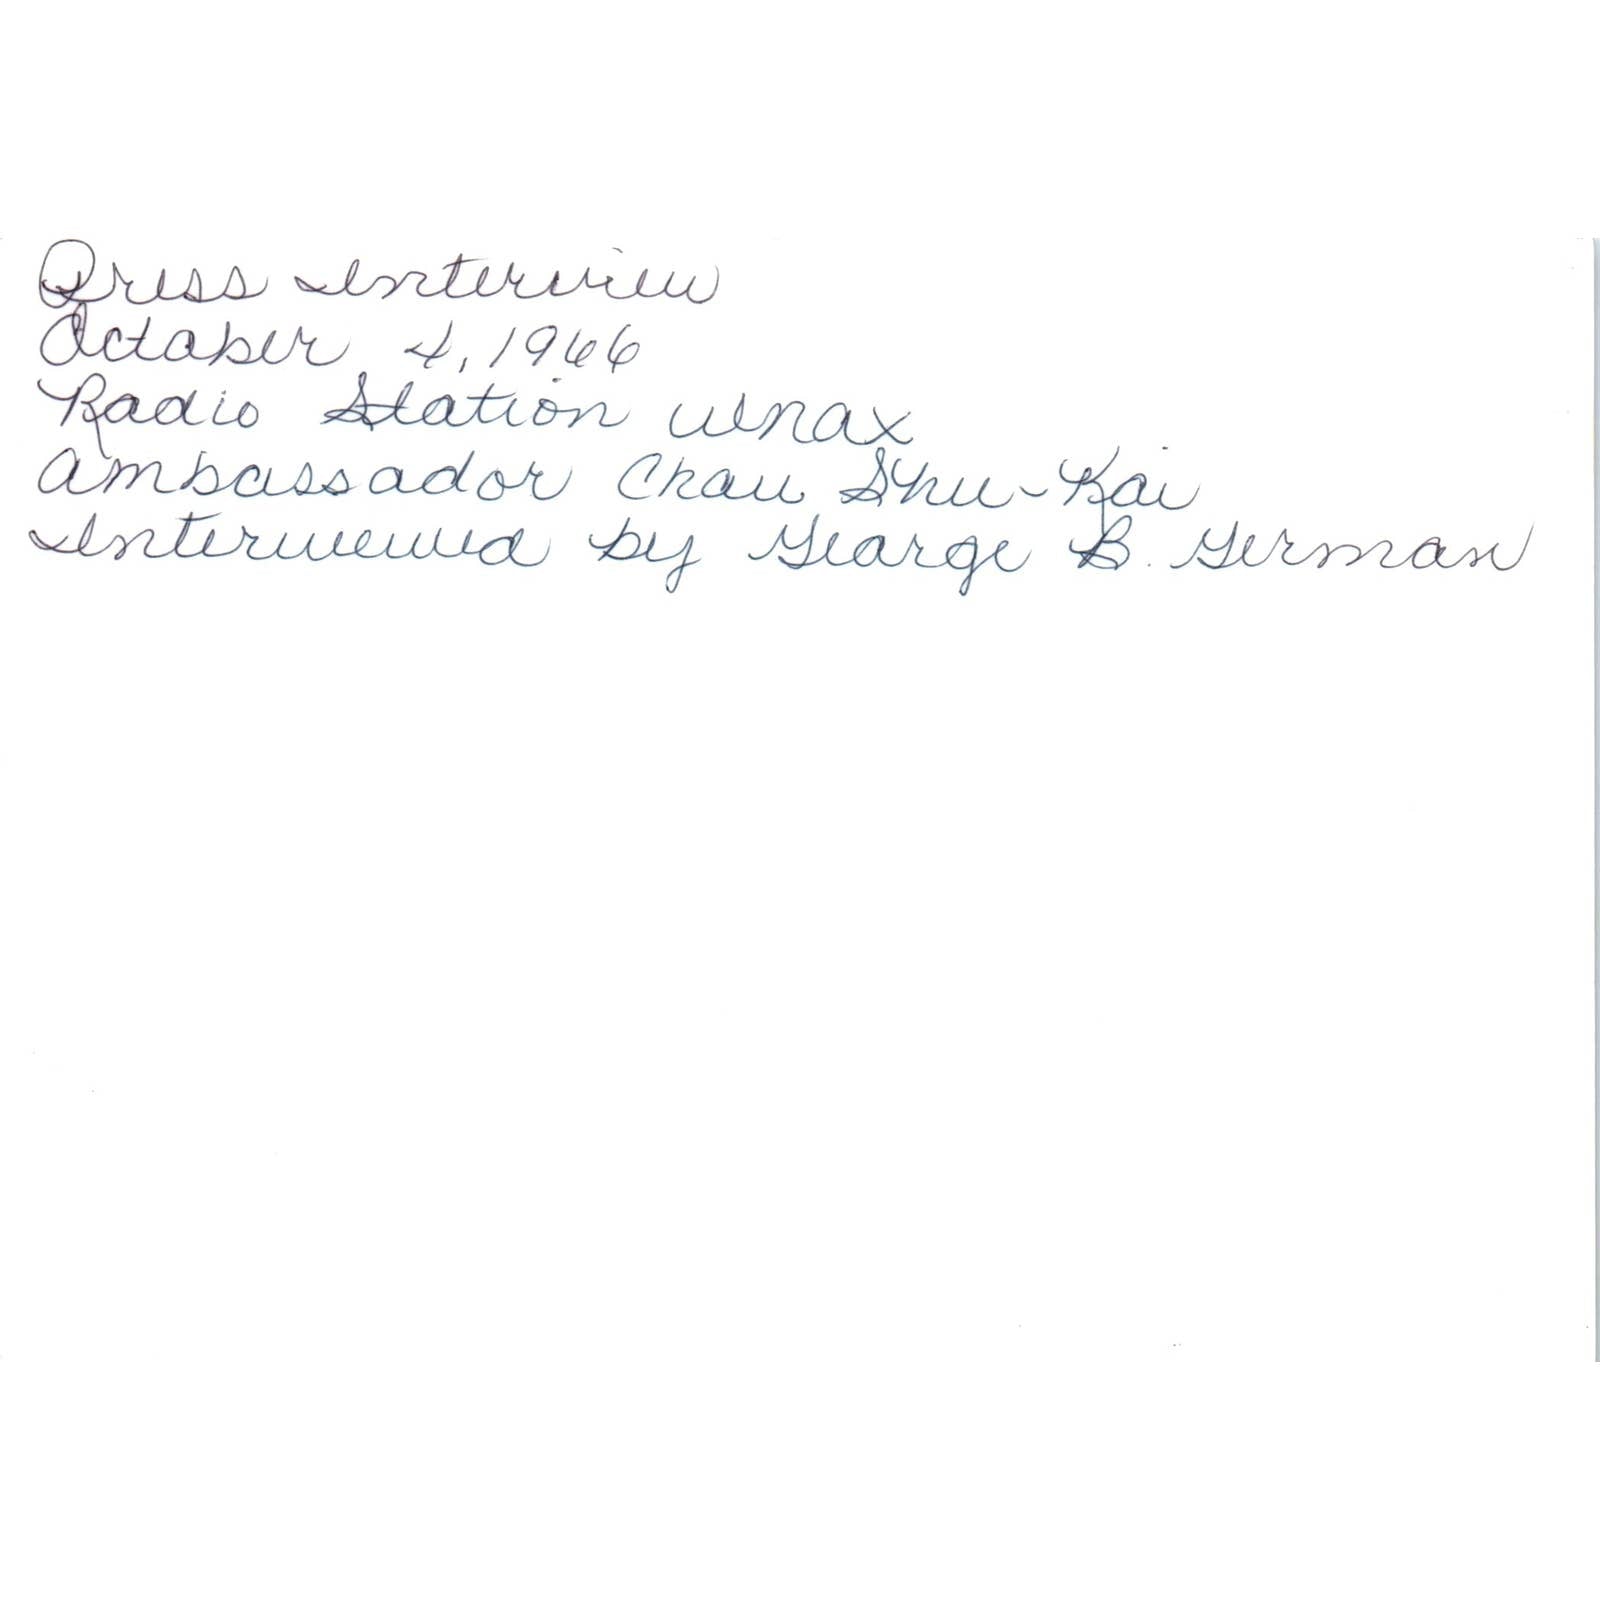 Press Interview
October 4, 1966
Radio Station WNAX
Ambassador Chau Shu-Kai
Interviewed by George B. German